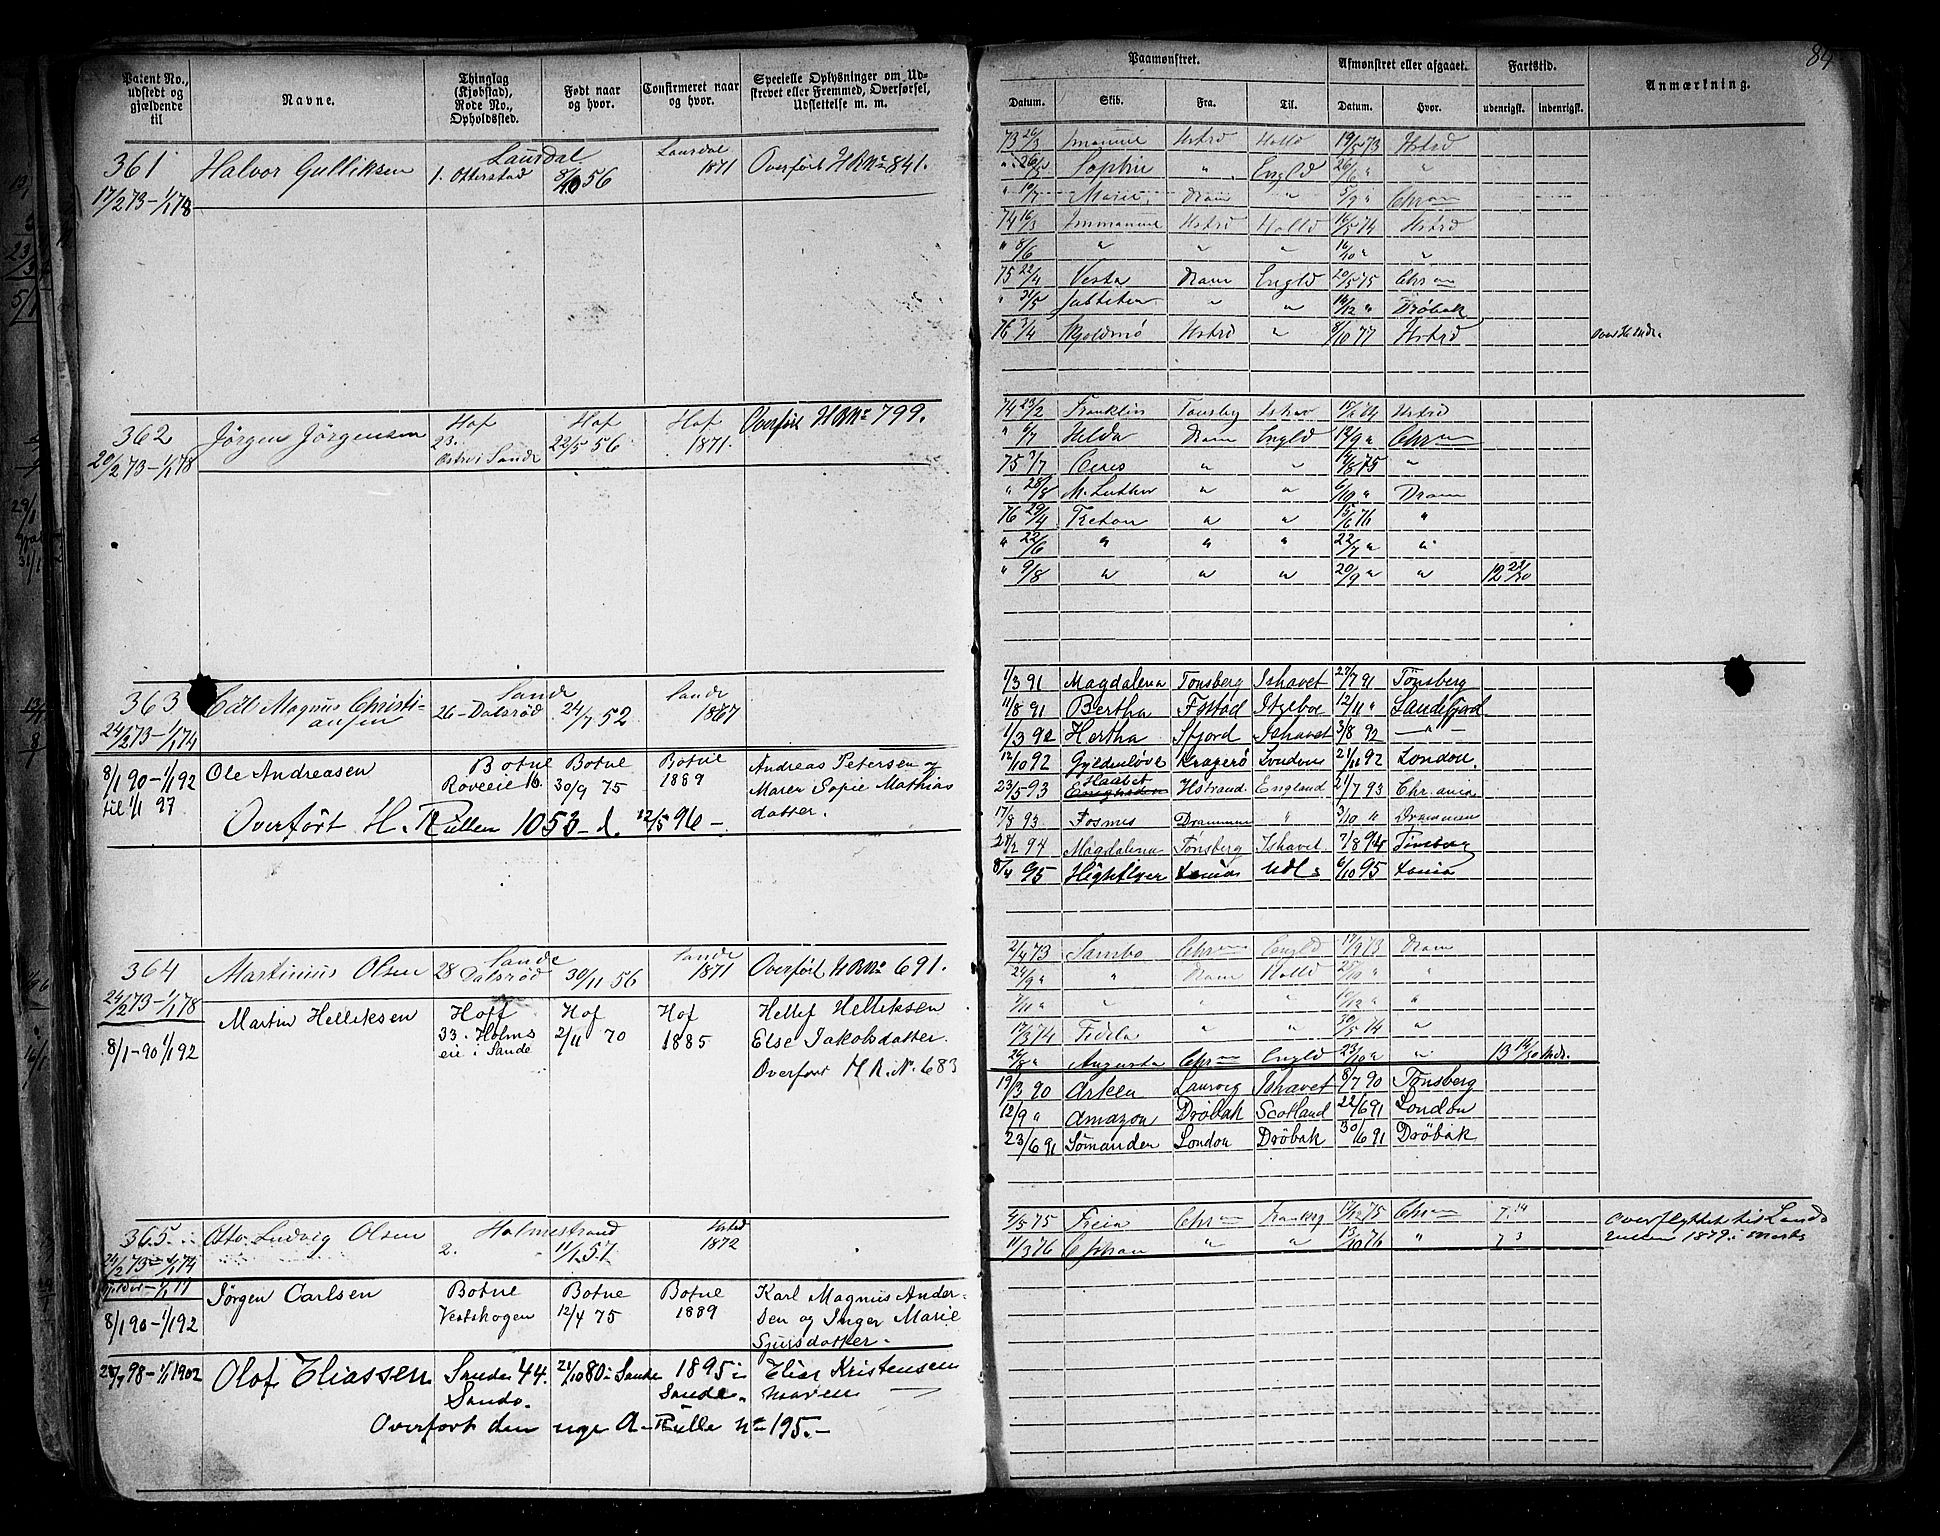 84
Patent No., udstedt og gjældende til
Navne.
Thinglag (Kjøbstad), Rode No., Opholdssted.
Født naar og hvor.
Confirmeret naar og hvor.
Specielle Oplysninger om Udskrevet eller Fremmed, Overførsel, Udslettelse m. m.
Paamønstret.
Afmønstret eller afgaaet.
Fartstid.
Anmærkning.
Datum. Skib. Fra. Til. Datum. Hvor. udenrigsk. indenrigsk.
361 Halvor Gulliksen Laurdal Laurdal
1. Otterstad 8/10 56 1871 Overført H R No 841.
17/2 73 – 1/1 78
362 Jörgen Jörgensen Hof Hof Hof Overført H R No 799.
23. 22/5 56 1871.
Østre i Sande
20/2 73 – 1/1 78
363 Magnus Christi- Sande Sande
ansen 26 - Dalsröd 24/7 52 1867
24/2 73 – 1/1 74
8/1 90 – 1/1 92 Ole Andreasen Botne Botne Botne Andreas Petersen og
til 1/1 97 Roveeie 16. 30/9 75 1889 Maren Sofie Mathias
datter.
Overført H. Rullen 1053 – d. 12/5 96 –
364 Martinius Olsen Sande Sande
28 Dalsröd 30/11 56 1871 Overført H R No 691.
24/2 73 – 1/1 78
8/1 - 90 1/1 92 Martin Helliksen Hoff Hof Hof Hellef Helliksen
33. Holms 2/11 70 1885 Else Jakobsdatter.
eie i Sande Overfört H. R. No. 683
365. Otto Ludvig Olsen Holmestrand Hstrd
2. 11/1 51. 1872
24/2 73 – 1/1 74
8/1 90 – 1/1 92 Jörgen Carlsen Botne Botne Botne Karl Magnus Ander-
Vestskogen 12/4 75 1889 sen og Inger Marie
Sjursdatter.
28/7 98 – 1/1 1902 Olof Eliassen Sande 44. 21/10 80 i Sande 1895 i Elias Kristensen
Sande. Sande.
Overført den nye A - Rulle No 195. –
73 26/3 Imanuel Hstrd Holld 19/5 73 Hstrd
" 26/5 Sophie " Engld 26/6 " "
" 19/7 Marie Dram " 5/9 " Chran
74 16/3 Immanuel Hstrd Holld 16/5 74 Hstrd
" 8/6 " " " 16/10 " "
75 22/4 Vesta Dram Engld 20/5 75 Chran
" 31/5 " " 14/12 " Dröbak
76 3/4 Hstrd " 8/10 77 Hstrd
74 23/2 Franklin Tønsbg Ishav Hstrd
" 6/7 Hilda Dram Engld 14/9 " Chran
75 3/7 Ceres " " 14/8 75 "
" 28/8 M. Luther " " 6/10 " Dram
76 29/4 " " 15/6 76 "
" 22/6 " " " 22/7 " "
" 9/8 " " " 20/9 " " 12 28/30
1/3 91 Magdalena Tønsberg Ishavet 27/7 91 Tønsberg
11/8 91 Bertha 12/11 " Sandefjord
1/3 92 Hertha Sfjord Ishavet 3/8 92 – " –
12/10 92 Gyldenløve Kragerø London 21/11 92 London.
23/5 93 Haabet Hstrand England 21/7 93 Chr.ania
17/8 93 Fosnes Drammen " 3/10 " Drammen
28/2 94 Magdalena Tønsberg Ishavet 7/8 94 Tønsberg
8/4 95 Highflyer Udl. 6/10 95
2/4 73 Sambo Chran Engld 17/9 73 Dram
24/9 " " Dram Holld 25/10 " "
7/11 " " " " "
17/3 74 Fidela " " 30/5 74 "
26/8 " Augusta Chran Engld 23/10 " " 13 14/30 Mdr.
19/3 90 Arken Laurvig Ishavet 8/7 90 Tønsberg
12/9 " Amazon Drøbak Scotland 22/6 91 London
23/6 91 Sømanden London Drøbak 30/6 91 Drøbak
2/5 75 Freia Chran Frankrg 17/12 75 Chran 7. 14 Overflyttet til Lands
11/3 76 " " 13/10 76 " 7 3 rullen 1879 i Marts